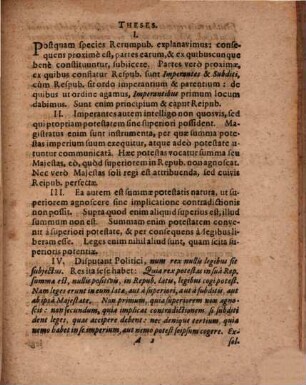 THESES.
I.
Postquam species Rerumpub. explanavimus: conse-
quens proximè est, partes earum, & ex quibuscunque
benè constituuntur, subiicere. Partes verò proximæ,
ex quibus constatur Respub. sunt Imperantes & Subditi,
cùm Respub. sit ordo imperantium & parentum: de
quibus ut ordine agamus, Imperantibus primum locum
dabimus. Sunt enim principium & caput Reipub.
II. Imperantes autem intelligo non quosvis, sed
qui proptiam potestatem sine superiori possident. Ma-
gistratus enim sunt instrumenta, per quæ summa potes-
tas imperium suum exequitur, atque adeò potestate u-
tuntur communicatâ. Hæc potestas vocatur summa seu
Majestas, eò, quòd superiorem in Repub. non agnoscat.
Nec verò Majestas soli regi est attribuenda, sed cuivis
Reipub. perfectæ.
III. Ea autem est summæ potestatis natura, ut su-
periorem agnoscere sine implicatione contradictionis
non possit. Supra quod enim aliquid superius est, illud
summum non est. Summam enim potestatem conve-
nit à superiori potestate, & per consequens à legibus li-
beram esse. Leges enim nihil aliud sunt, quàm scita su-
perioris potentiæ.
IV. Disputant Politici, num rex nullis legibus sit
subjectus. Res ita sese habet: Quia rex potestas in suâ Rep.
summa est, nullis positivis, in Repub. latis, legibus cogi potest.
Nam leges erunt in eum latæ, aut à superiori, aut à subditis, aut
ab ipsâ Majestate. Non primum, quia superiorem non agno-
scit: non secundum, quia implicat contradictionem. si subditi
dent leges, quas accipere debent: nec denique tertium, quia
nemo habet in se imperium, aut nemo potest seipsum cogere. Ex-
A 2 sol.